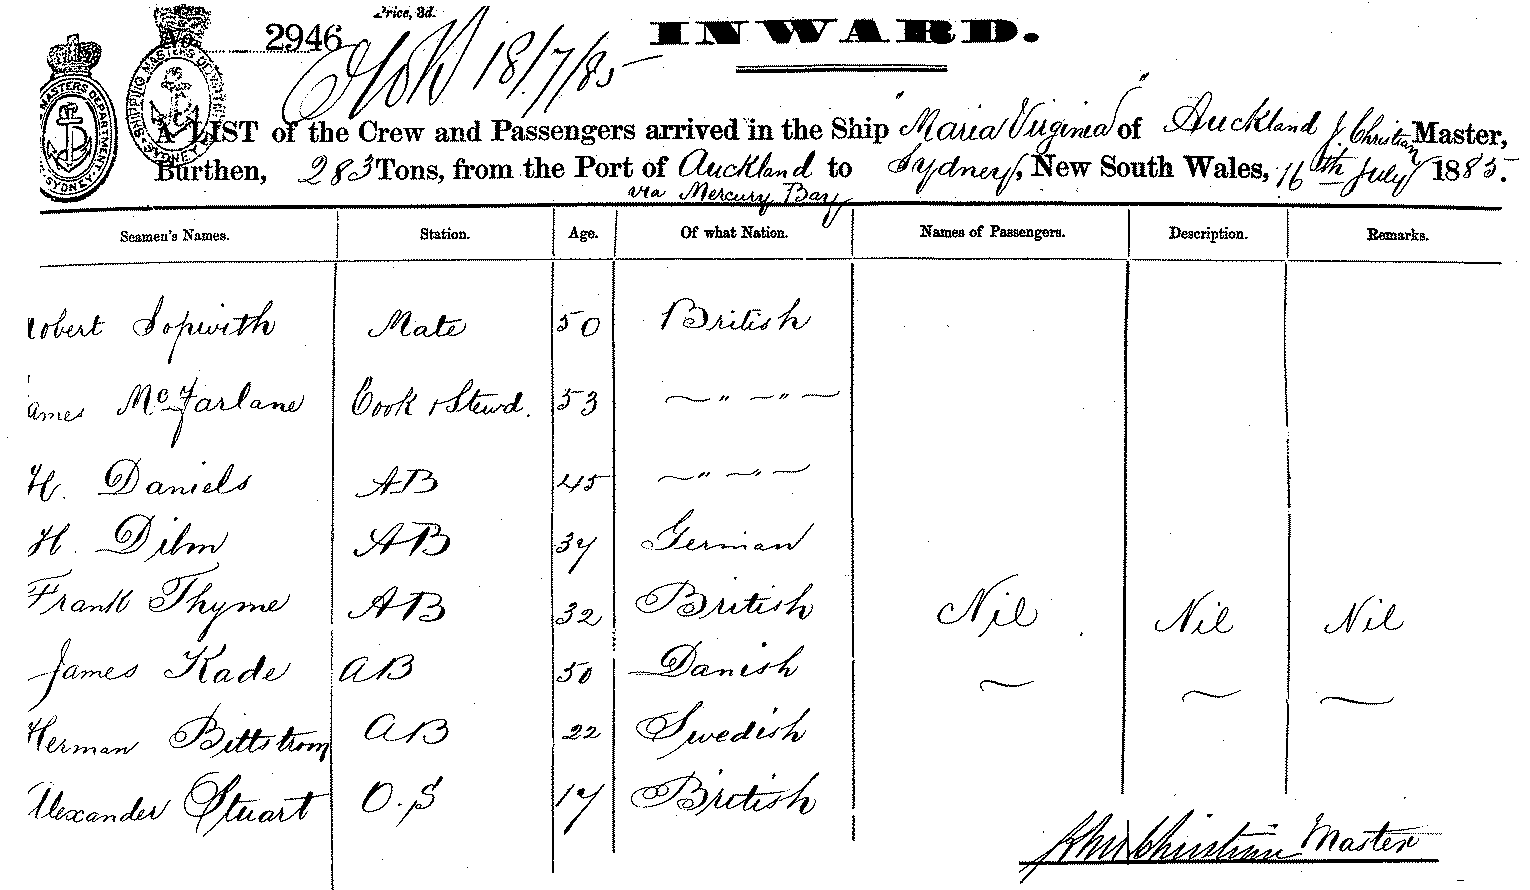 Price, 3d.
No. 2946 INWARD.
18/7/85
A LIST of the Crew and Passengers arrived in the Ship "Maria Virginia" of Auckland J. Christian Master,
Burthen, 283 Tons, from the Port of Auckland to Sydney, New South Wales, 16th July 1885.
via Mercury Bay
Seamen's Names. Station. Age. Of what Nation. Names of Passengers. Description. Remarks.
obert Sopwith Mate 50 British
ames McFarlane Cook & Stewd. 53 — " — " —
H. Daniels AB 45 — " — " —
H. Dilm AB 37 German
Frank Thyme AB 32 British Nil Nil Nil
James Kade AB 50 Danish
Herman Bittstrom AB 22 Swedish
Alexander Stuart O.S 17 British
John Christian Master